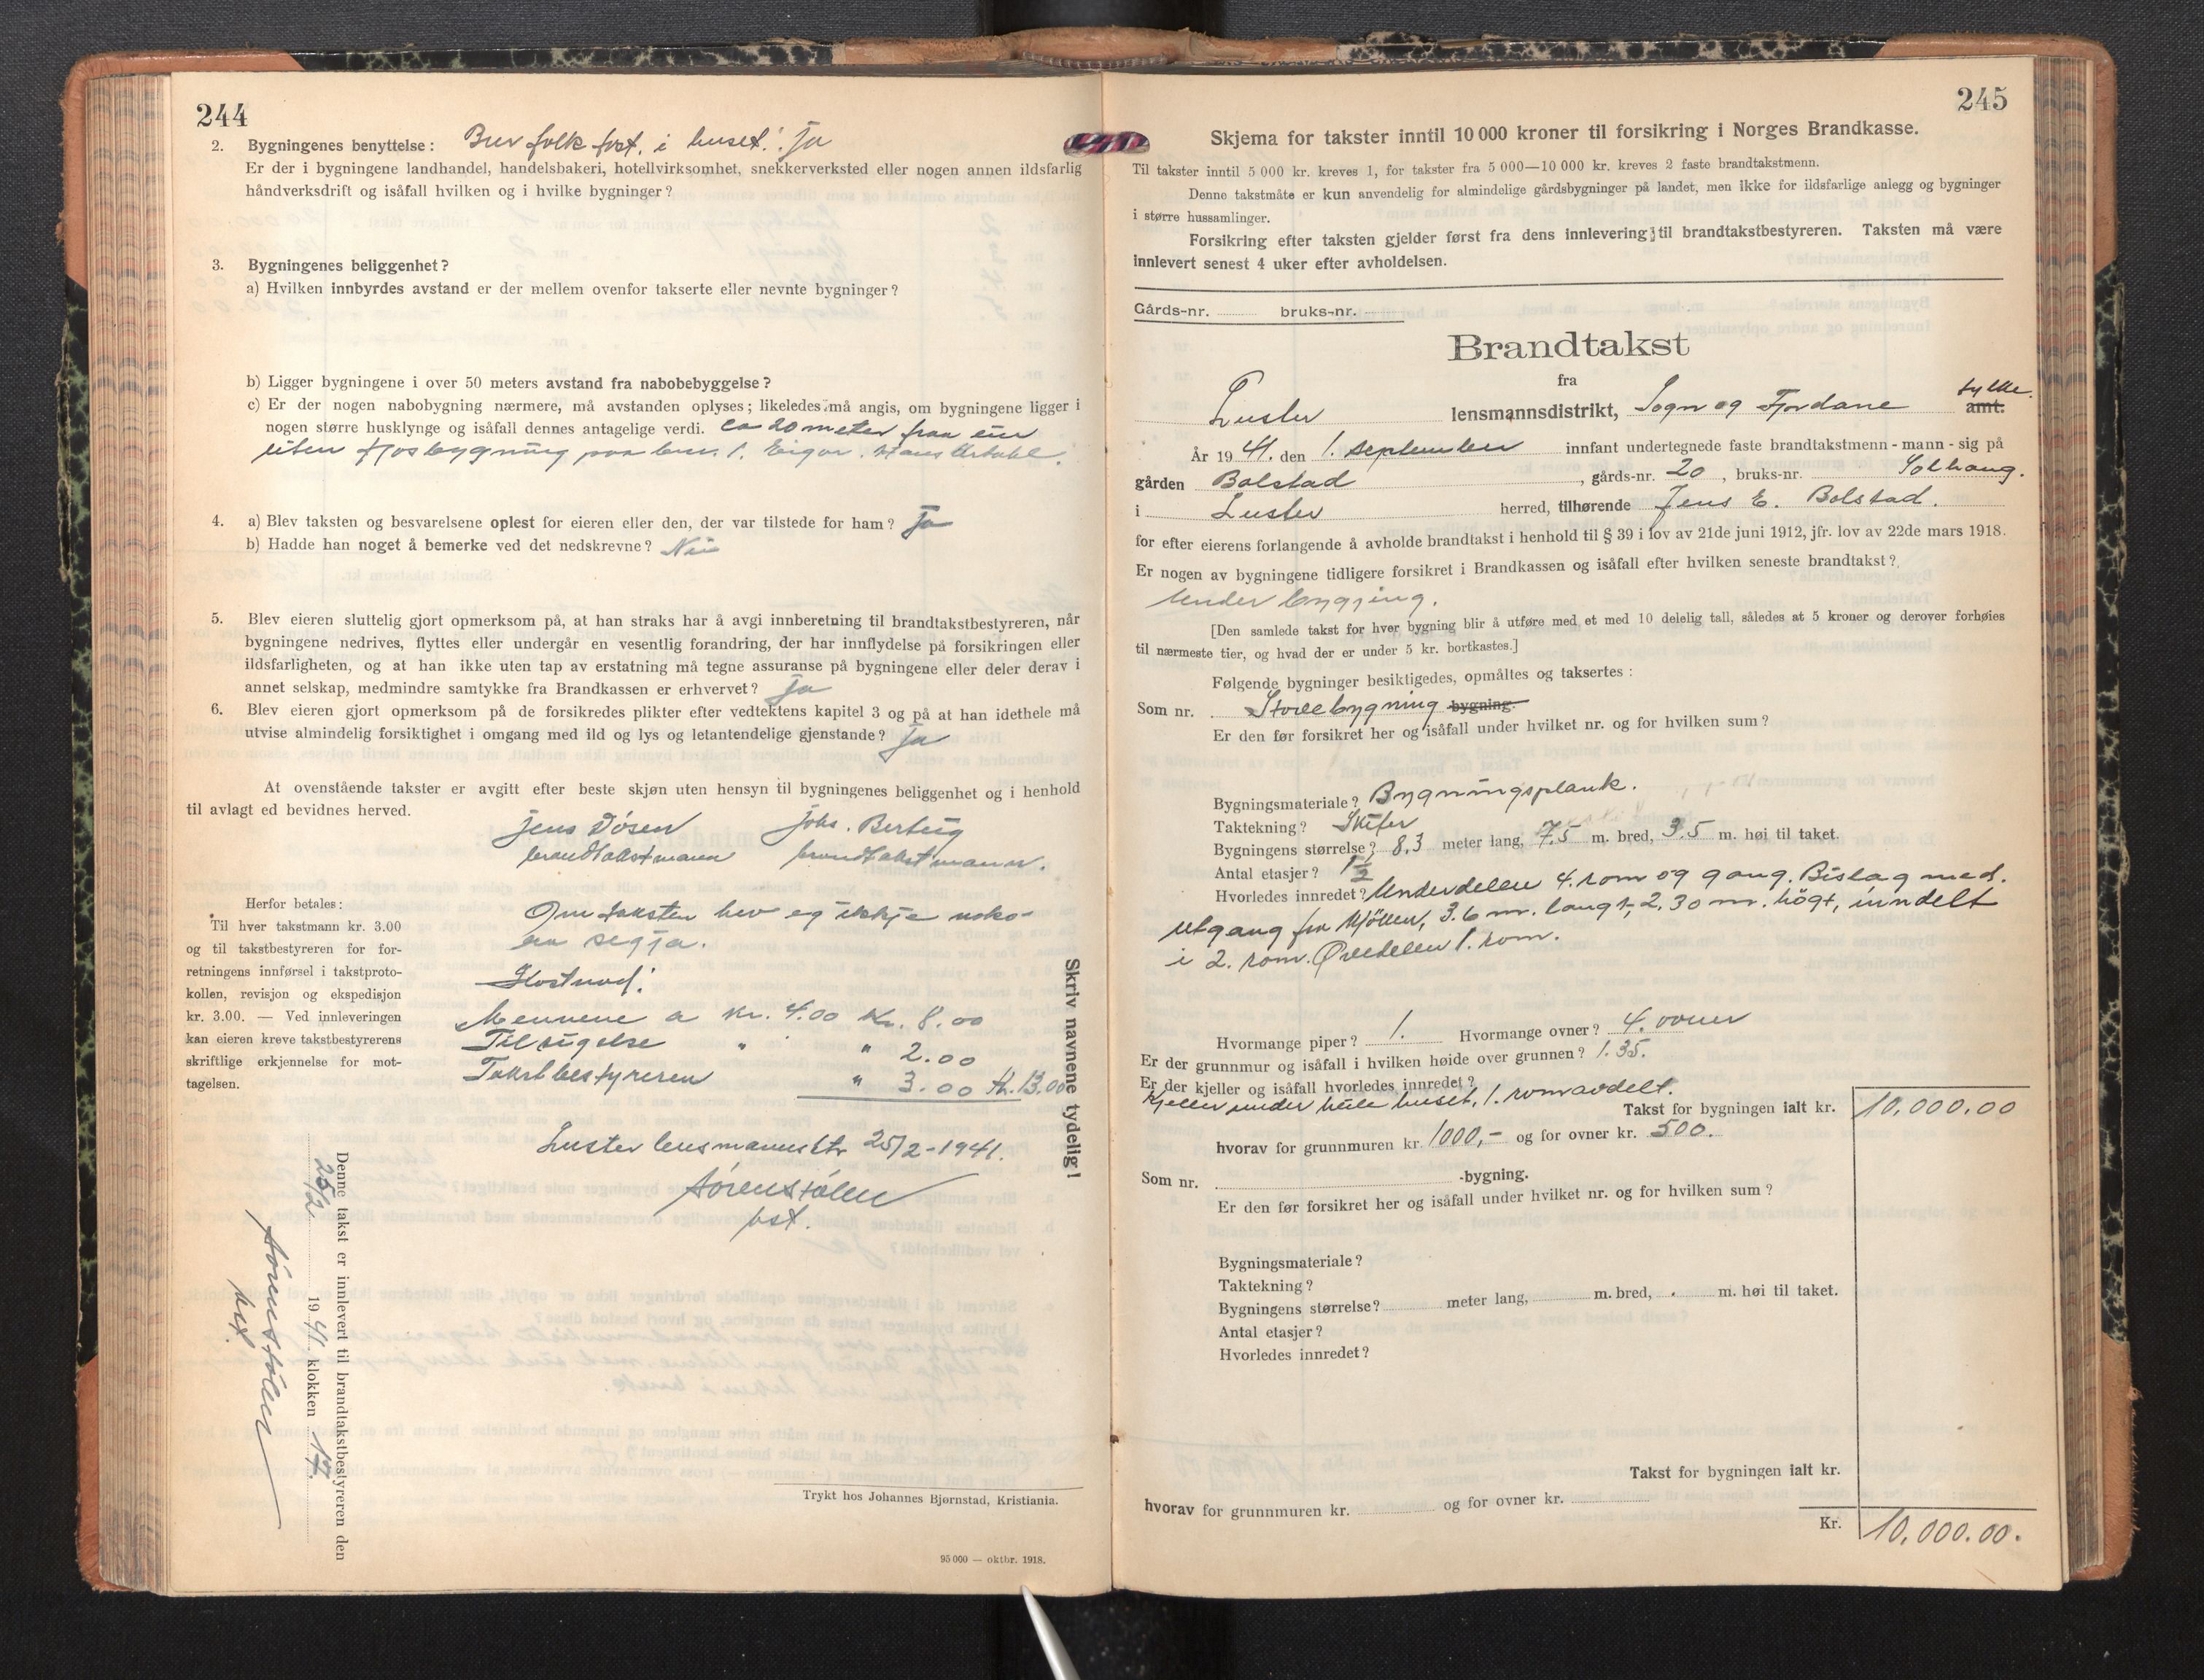 244
2. Bygningenes benyttelse: Bur folk fast i huset? Ja
Er der i bygningene landhandel, handelsbakeri, hotellvirksomhet, snekkerverksted eller nogen annen ildsfarlig
håndverksdrift og isåfall hvilken og i hvilke bygninger?
3. Bygningenes beliggenhet?
a) Hvilken innbyrdes avstand er der mellem ovenfor takserte eller nevnte bygninger?
b) Ligger bygningene i over 50 meters avstand fra nabobebyggelse?
c) Er der nogen nabobygning nærmere, må avstanden oplyses; likeledes må angis, om bygningene ligger i
nogen større husklynge og isåfall dennes antagelige verdi. ca 20 meter fraa ein
liten fjosbygning paa bnr. 1. Eigar. Hans
4. a) Blev taksten og besvarelsene oplest for eieren eller den, der var tilstede for ham? Ja
b) Hadde han noget å bemerke ved det nedskrevne? Nei
5. Blev eieren sluttelig gjort opmerksom på, at han straks har å avgi innberetning til brandtakstbestyreren, når
bygningene nedrives, flyttes eller undergår en vesentlig forandring, der har innflydelse på forsikringen eller
ildsfarligheten, og at han ikke uten tap av erstatning må tegne assuranse på bygningene eller deler derav i
annet selskap, medmindre samtykke fra Brandkassen er erhvervet? Ja
6. Blev eieren gjort opmerksom på de forsikredes plikter efter vedtektens kapitel 3 og på at han idethele må
utvise almindelig forsiktighet i omgang med ild og lys og letantendelige gjenstande? Ja
At ovenstående takster er avgitt efter beste skjøn uten hensyn til bygningenes beliggenhet og i henhold
til avlagt ed bevidnes herved.
Jens Døsen Johs. Berteig
brandtakstmann brandtakstmann.
Herfor betales:
Til hver takstmann kr. 3.00
og til takstbestyreren for for-
retningens innførsel i takstproto-
kollen, revisjon og ekspedisjon
kr. 3.00. — Ved innleveringen
kan eieren kreve takstbestyrerens
skriftlige erkjennelse for mot-
tagelsen.
Om taksten hev eg ikkje noko-
aa segja.
Kostnad:
Mennene a kr. 4.00 Kr. 8.00
Tilsigelse " " 2.00
Takstbestyreren " 3.00 Kr. 13.00
Luster lensmannsktr 25/2-1941.
Sørensjølen
bst.
Skriv navnene tydelig!
Denne takst er innlevert til brandtakstbestyreren den
25/2 1941 klokken 17.
bst.
Trykt hos Johannes Bjørnstad, Kristiania.
95 000 — oktbr. 1918.
245
Skjema for takster inntil 10 000 kroner til forsikring i Norges Brandkasse.
Til takster inntil 5 000 kr. kreves 1, for takster fra 5 000—10 000 kr. kreves 2 faste brandtakstmenn.
Denne takstmåte er kun anvendelig for almindelige gårdsbygninger på landet, men ikke for ildsfarlige anlegg og bygninger
i større hussamlinger.
Forsikring efter taksten gjelder først fra dens innlevering til brandtakstbestyreren. Taksten må være
innlevert senest 4 uker efter avholdelsen.
Gårds-nr. bruks-nr.
Brandtakst
fra
Luster lensmannsdistrikt, Sogn og Fjordane fylke. amt.
År 1941. den 1. september innfant undertegnede faste brandtakstmenn - mann - sig på
gården Bolstad, gårds-nr. 20, bruks-nr. Solhaug.
i Luster herred, tilhørende Jens E. Bolstad.
for efter eierens forlangende å avholde brandtakst i henhold til § 39 i lov av 21de juni 1912, jfr. lov av 22de mars 1918.
Er nogen av bygningene tidligere forsikret i Brandkassen og isåfall efter hvilken seneste brandtakst?
Under bygging.
[Den samlede takst for hver bygning blir å utføre med et med 10 delelig tall, således at 5 kroner og derover forhøies
til nærmeste tier, og hvad der er under 5 kr. bortkastes.]
Følgende bygninger besiktigedes, opmåltes og taksertes:
Som nr. Stovebygning bygning.
Er den før forsikret her og isåfall under hvilket nr. og for hvilken sum?
Bygningsmateriale? Bygningsplank.
Taktekning? Skifer
Bygningens størrelse? 8.3 meter lang, 7.5 m. bred, 3.5 m. høi til taket.
Antal etasjer? 1 1/2
Hvorledes innredet? Underdelen 4. rom og gang. Bislag med.
utgang fra kjöken, 3.6 m. langt, 2.30 m. högt, inndelt
i 2. rom. Överdelen 1. rom.
Hvormange piper? 1. Hvormange ovner? 4. ovner
Er der grunnmur og isåfall i hvilken høide over grunnen? 1.35.
Er der kjeller og isåfall hvorledes innredet?
Kjeller under heile huset, 1. rom avdelt.
Takst for bygningen ialt kr. 10,000.00
hvorav for grunnmuren kr. 1000,- og for ovner kr. 500.
Som nr. -bygning.
Er den før forsikret her og isåfall under hvilket nr. og for hvilken sum?
Bygningsmateriale?
Taktekning?
Bygningens størrelse? meter lang, m. bred, m. høi til taket.
Antal etasjer?
Hvorledes innredet?
Takst for bygningen ialt kr.
hvorav for grunnmuren kr. og for ovner kr.
Kr. 10,000.00.